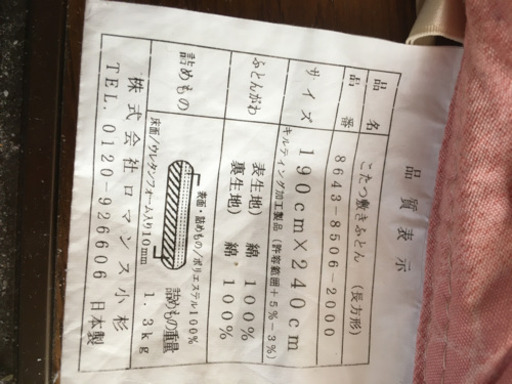 品質表示
品名 こたつ敷きふとん (長方形)
品番 8643-8506-2000
サイズ 190cm×240cm
キルティング加工製品 (許容範囲+5%-3%)
ふとんがわ 表生地) 綿 100%
裏生地) 綿 100%
詰めもの 表面・詰めもの/ポリエステル100%
床面/ウレタンフォーム入り10mm
詰めもの重量
1.3kg
株式会社ロマンス小杉 日本製
TEL. 0120-926606